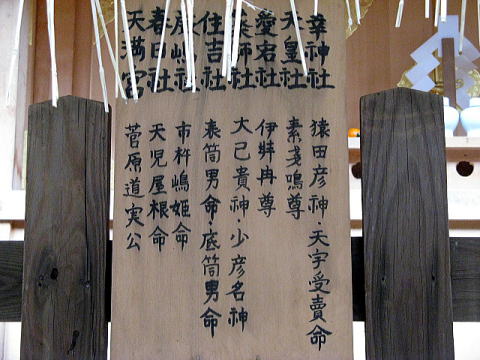 幸神社 猿田彦神・天宇受賣命
天皇社 素戔鳴尊
愛宕社 伊弉冉尊
薬師社 大己貴神・少彦名神
住吉社 表筒男命・底筒男命
厳嶋社 市杵嶋姫命
春日社 天児屋根命
天満宮 菅原道実公